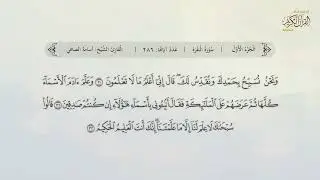 الجزء الأول | سورة البقرة | عدد آياتها: ٢٨٦ | القارئ الشيخ: أسامة الصافي
وَنَحْنُ نُسَبِّحُ بِحَمْدِكَ وَنُقَدِّسُ لَكَ قَالَ إِنِّي أَعْلَمُ مَا لَا تَعْلَمُونَ ۝٣٠ وَعَلَّمَ ءَادَمَ الْأَسْمَاءَ
كُلَّهَا ثُمَّ عَرَضَهُمْ عَلَى الْمَلَائِكَةِ فَقَالَ أَنبِئُونِي بِأَسْمَاءِ هَؤُلَاءِ إِن كُنتُمْ صَادِقِينَ ۝٣١ قَالُوا
سُبْحَانَكَ لَا عِلْمَ لَنَا إِلَّا مَا عَلَّمْتَنَا إِنَّكَ أَنتَ الْعَلِيمُ الْحَكِيمُ ۝٣٢